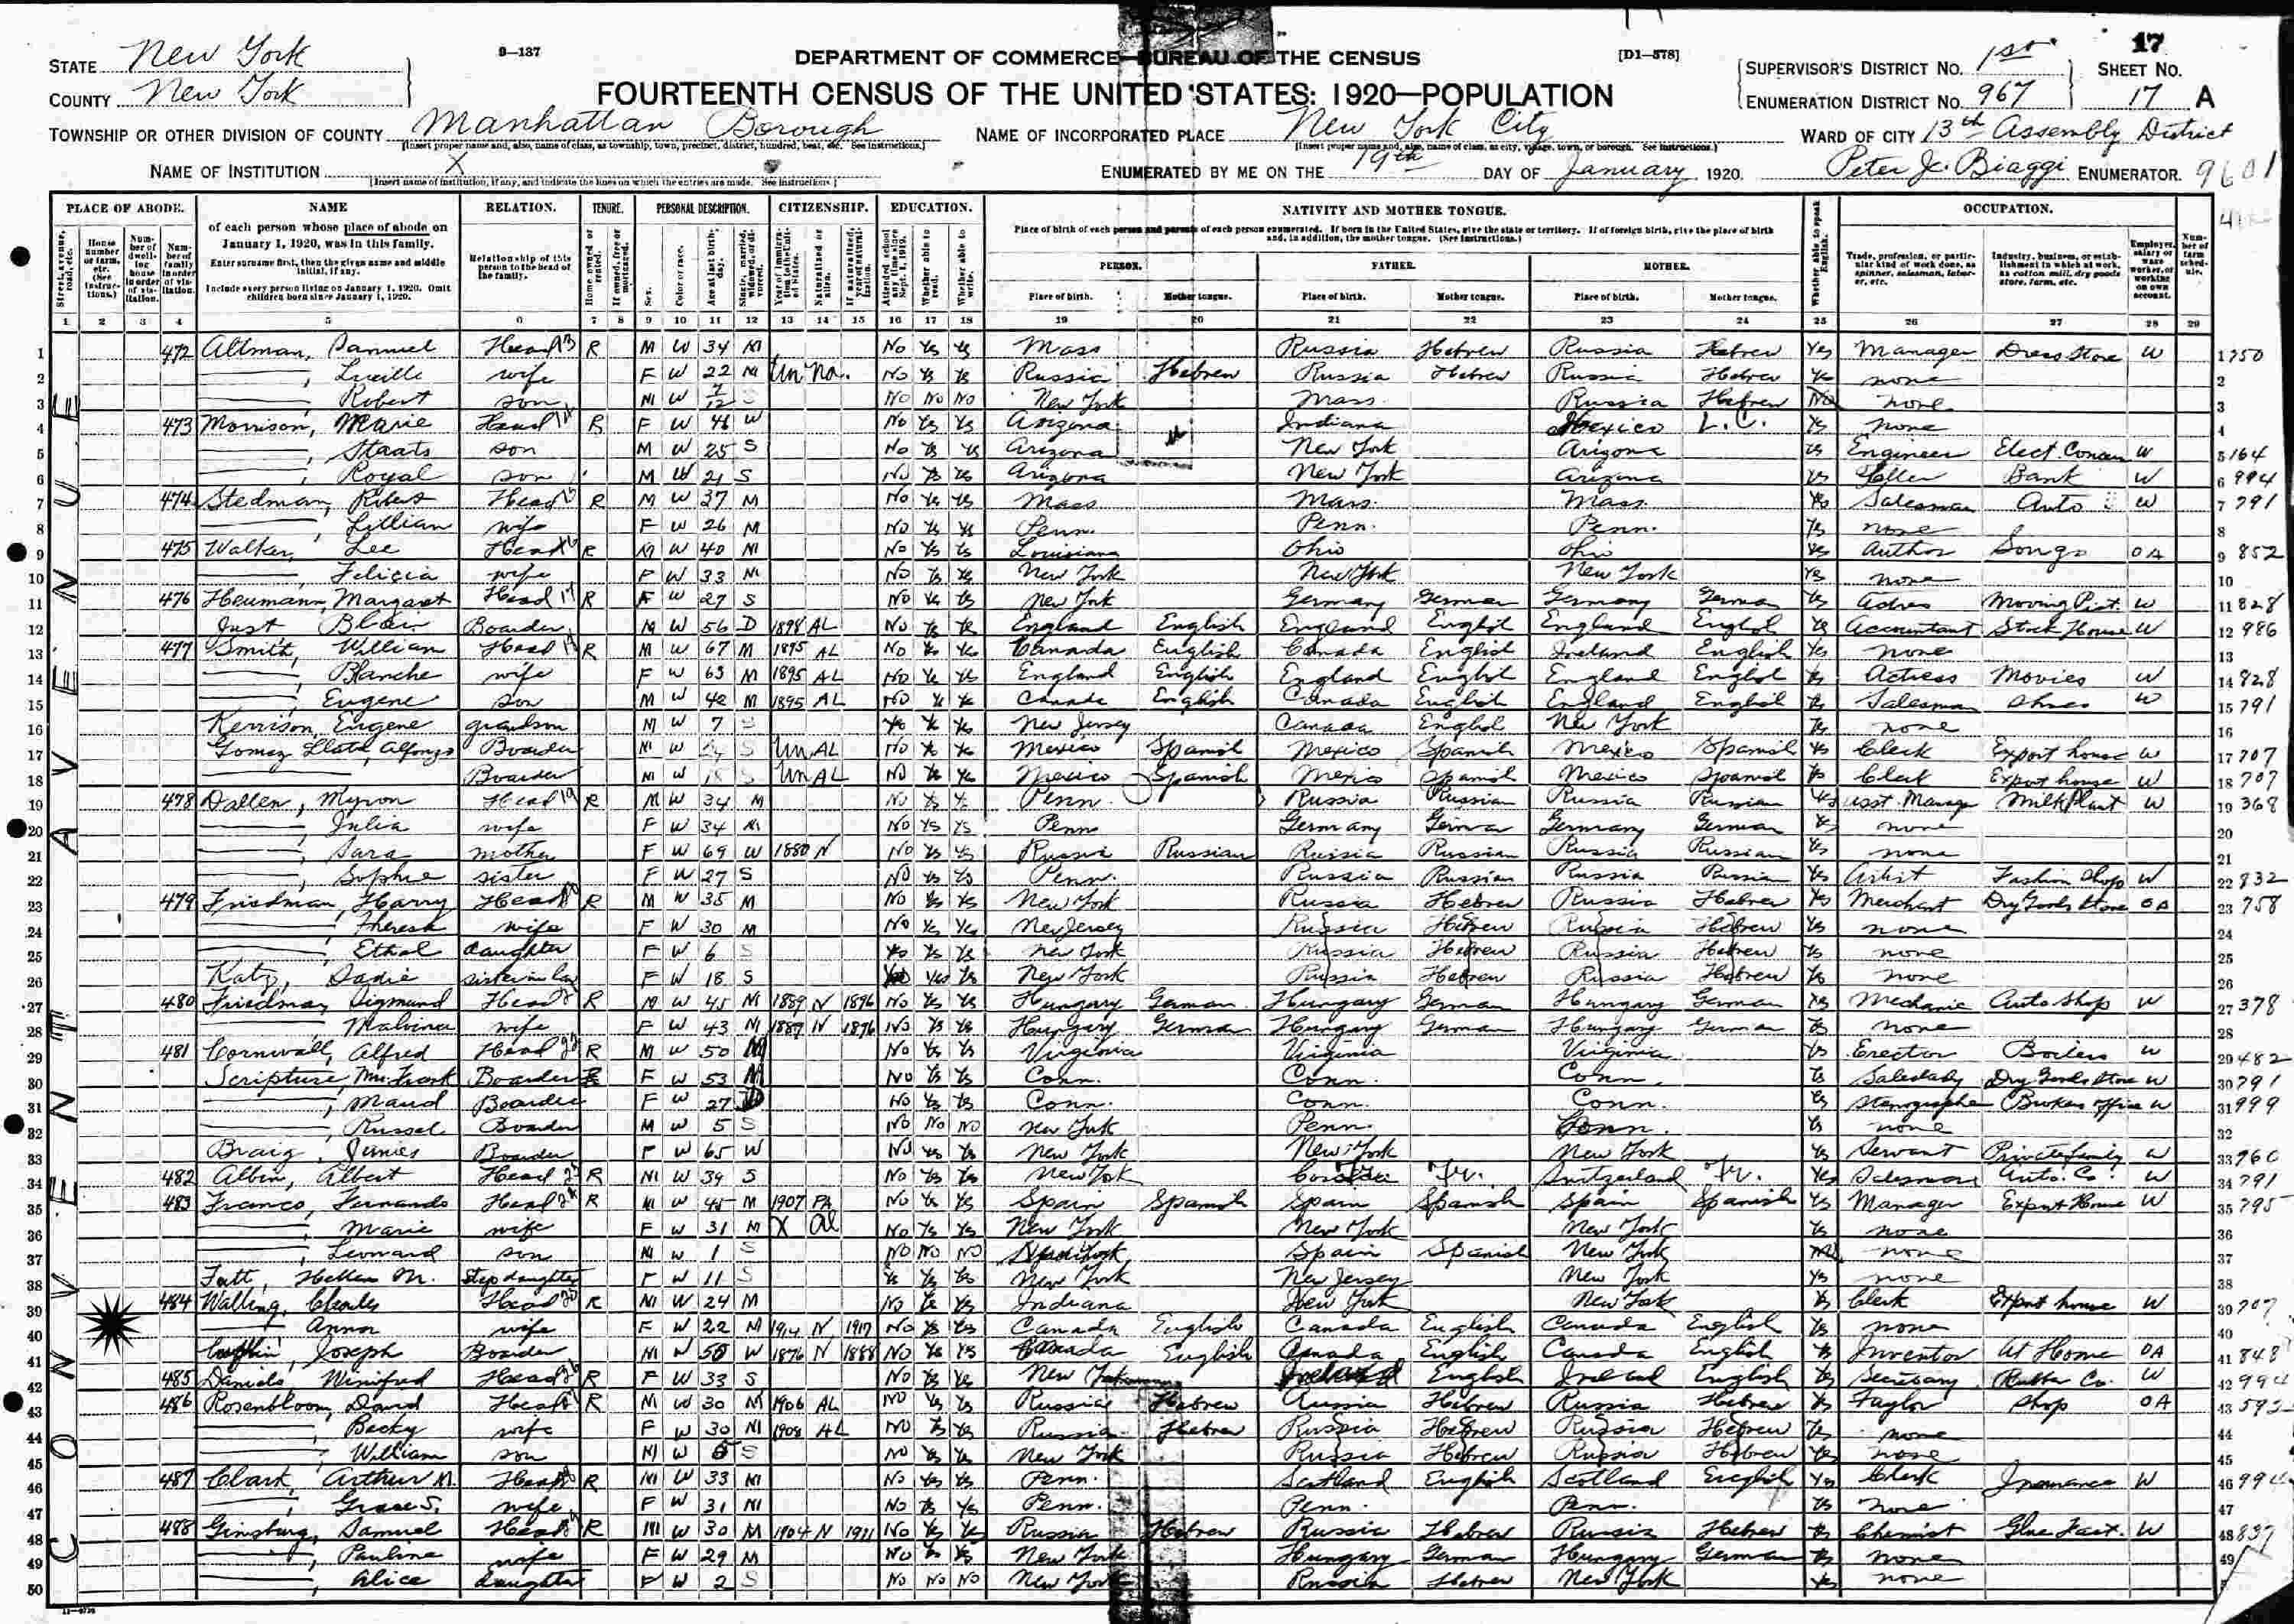 9—137
DEPARTMENT OF COMMERCE—BUREAU OF THE CENSUS
[D1—578]
17
STATE New York
COUNTY New York
FOURTEENTH CENSUS OF THE UNITED STATES: 1920—POPULATION
SUPERVISOR'S DISTRICT No. 1st
ENUMERATION DISTRICT No. 967
SHEET No. 17 A
TOWNSHIP OR OTHER DIVISION OF COUNTY Manhattan Borough
NAME OF INCORPORATED PLACE New York City
WARD OF CITY 13th Assembly District
NAME OF INSTITUTION X
ENUMERATED BY ME ON THE 19th DAY OF January, 1920. Peter J. Biaggi ENUMERATOR. 9601
PLACE OF ABODE. NAME RELATION. TENURE. PERSONAL DESCRIPTION. CITIZENSHIP. EDUCATION. NATIVITY AND MOTHER TONGUE. OCCUPATION.
of each person whose place of abode on January 1, 1920, was in this family.
Enter surname first, then the given name and middle initial, if any.
Include every person living on January 1, 1920. Omit children born since January 1, 1920.
Relationship of this person to the head of the family.
Place of birth of each person and parents of each person enumerated. If born in the United States, give the state or territory. If of foreign birth, give the place of birth and, in addition, the mother tongue. (See instructions.)
PERSON. FATHER. MOTHER.
Place of birth. Mother tongue. Place of birth. Mother tongue. Place of birth. Mother tongue.
1 2 3 4 5 6 7 8 9 10 11 12 13 14 15 16 17 18 19 20 21 22 23 24 25 26 27 28 29
1 472 Altman, Samuel Head R M W 34 M No Yes Yes Mass Russia Hebrew Russia Hebrew Yes Manager Dress Store W
2 Lucille wife F W 22 M Un Na. No Yes Yes Russia Hebrew Russia Hebrew Russia Hebrew Yes none
3 Robert son M W 7/12 S No No No New York Mass. Russia Hebrew No none
4 473 Morrison, Marie Head R F W W No Yes Yes Arizona Indiana Mexico Yes none
5 Staats son M W 25 S No Yes Yes Arizona New York Arizona Yes Engineer Elect W 164
6 Royal son M W 21 S No Yes Yes Arizona New York Arizona Yes Teller Bank W 994
7 474 Stedman, Robert Head R M W 37 M No Yes Yes Mass Mass. Mass. Yes Salesman Auto W 791
8 Lillian wife F W 26 M No Yes Yes Penn. Penn. Penn. Yes none
9 475 Walker, Lee Head R M W 40 M No Yes Yes Louisiana Ohio Ohio Yes Author Songs OA 852
10 Felicia wife F W 33 M No Yes Yes New York New York New York Yes none
11 476 Heumann, Margaret Head R F W 27 S No Yes Yes New York Germany German Germany German Yes Moving Pict. W 828
12 Boarder M W 56 D 1898 AL No Yes Yes England English England English England English Yes Accountant Stock House W 986
13 477 Smith, William Head R M W 67 M 1895 AL No Yes Yes Canada English Canada English Ireland English Yes none
14 Blanche wife F W 63 M 1895 AL No Yes Yes England English England English England English Yes Actress Movies W 828
15 Eugene son M W 42 M 1895 AL No Yes Yes Canada English Canada English England English Yes Salesman W 791
16 Kerrison, Eugene grandson M W 7 S Yes Yes Yes New Jersey Canada English New York Yes none
17 Gomez Alfonso Boarder M W S Un AL No Yes Yes Mexico Spanish Mexico Spanish Mexico Spanish Yes Clerk Export house W 707
18 Boarder M W S Un AL No Yes Yes Mexico Spanish Mexico Spanish Mexico Spanish Yes Clerk Export house W 707
19 478 Dallen, Myron Head R M W 34 M No Yes Yes Penn. Russia Russian Russia Russian Yes Asst. Manager Milk Plant W 368
20 Julia wife F W 34 M No Yes Yes Penn Germany German Germany German Yes none
21 Sara mother F W 69 W 1880 N No Yes Yes Russia Russian Russia Russian Russia Russian Yes none
22 Sophie sister F W 27 S No Yes Yes Penn. Russia Russian Russia Russian Yes Artist Fashion Shop W 832
23 479 Friedman, Harry Head R M W 35 M No Yes Yes New York Russia Hebrew Russia Hebrew Yes Merchant Dry Goods Store OA 758
24 Theresa wife F W 30 M No Yes Yes New Jersey Russia Hebrew Russia Hebrew Yes none
25 Ethel daughter F W 6 S Yes Yes Yes New York Russia Hebrew Russia Hebrew Yes none
26 Katz, Sadie sister in law F W 18 S Yes Yes New York Russia Hebrew Russia Hebrew Yes none
27 480 Friedman Sigmund Head R M W 45 M 1889 N 1896 No Yes Yes Hungary German Hungary German Hungary German Yes Mechanic Auto Shop W 378
28 Malvina wife F W 43 M 1887 N 1896 No Yes Yes Hungary German Hungary German Hungary German Yes none
29 481 Cornwall, Alfred Head R M W 50 No Yes Yes Virginia Virginia Virginia Yes Erector Boilers W 482
30 Scripture, Mrs. Frank Boarder F W 53 No Yes Yes Conn. Conn. Conn. Yes Saleslady Dry Goods Store W 791
31 Maud Boarder F W 27 No Yes Yes Conn. Conn. Conn. Yes Stenographer Brokers office W 999
32 Russel Boarder M W 5 S No No No New York Penn. Conn. Yes none
33 Boarder F W 65 W No Yes Yes New York New York New York Yes Servant Private family W 960
34 482 Albin, Albert Head R M W 39 S No Yes Yes New York Fr. Switzerland Fr. Yes Salesman Auto. Co. W 791
35 483 Franco, Fernando Head R M W 45 M 1907 PA No Yes Yes Spain Spanish Spain Spanish Spain Spanish Yes Manager Export House W 795
36 Marie wife F W 31 M X Al No Yes Yes New York New York New York Yes none
37 Leonard son M W 1 S No No No New York Spain Spanish New York none
38 Hellen M. Step daughter F W 11 S Yes Yes Yes New York New Jersey New York Yes none
39 484 Walling, Charles Head R M W 24 M No Yes Yes Indiana New York New York Yes Clerk Export house W 707
40 Anna wife F W 22 M 1914 N 1917 No Yes Yes Canada English Canada English Canada English Yes none
41 Joseph Boarder M W W 1876 N 1888 No Yes Yes Canada English Canada English Canada English Yes Inventor At Home OA 848
42 485 Daniels Winifred Head R F W 33 S No Yes Yes New York Ireland English Ireland English Yes Secretary Rubber Co. W 994
43 486 Rosenbloom, David Head R M W 30 M 1906 AL No Yes Yes Russia Hebrew Russia Hebrew Russia Hebrew Yes Taylor Shop OA 592
44 Becky wife F W 30 M 1908 AL No Yes Yes Russia Hebrew Russia Hebrew Russia Hebrew Yes none
45 William son M W S No Yes Yes New York Russia Hebrew Russia Hebrew Yes none
46 487 Clark, Arthur M. Head R M W 33 M No Yes Yes Penn. Scotland English Scotland English Yes Clerk Insurance W 994
47 Grace S. wife F W 31 M No Yes Yes Penn. Penn. Penn. Yes none
48 488 Ginsburg, Samuel Head R M W 30 M 1904 N 1911 No Yes Yes Russia Hebrew Russia Hebrew Russia Hebrew Yes Chemist Glue Fact. W 837
49 Pauline wife F W 29 M No Yes Yes New York Hungary German Hungary German Yes none
50 Alice daughter F W 2 S No No No New York Russia Hebrew New York Yes none